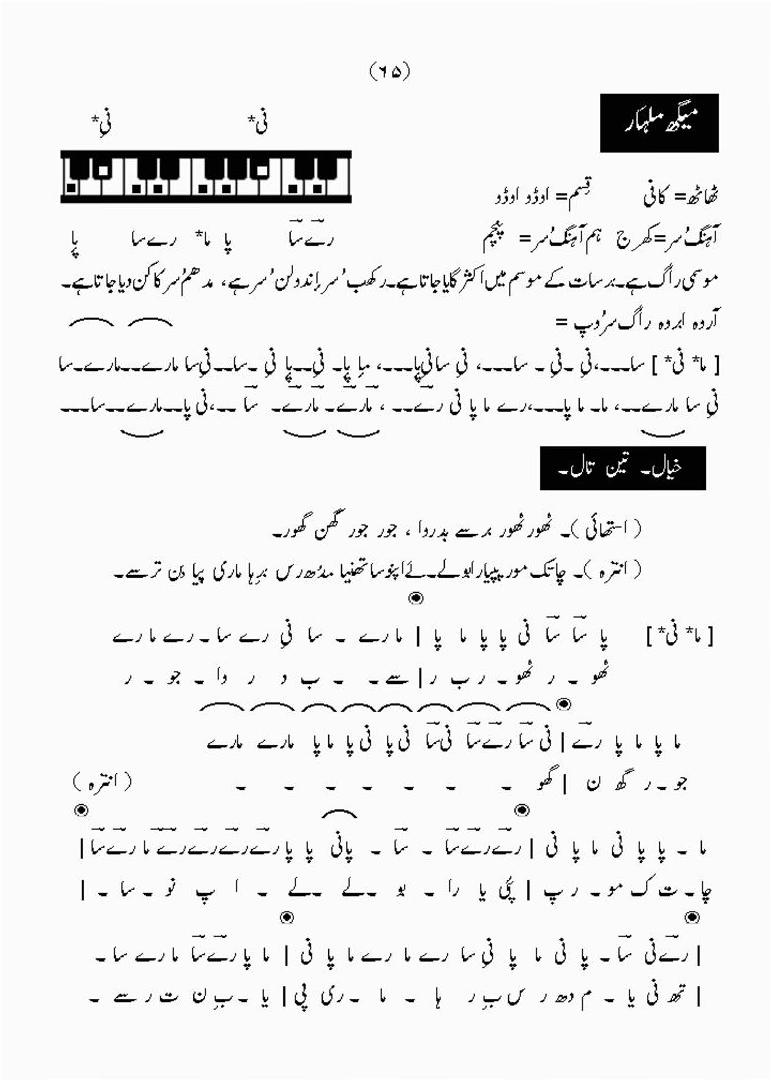 (۶۵)
میگھ ملہار
نی* نیِ*
ٹھاٹھ= کافی قسم= اوڈو اوڈو
آہنگ سُر=کھرج ہم آہنگ سُر= پنچم
رےَ ساَ پا ما* رے سا پاِ
موسمی راگ ہے۔ برسات کے موسم میں اکثر گایا جاتا ہے۔ رکھب سُر اندولن سُر ہے، مدھم سُر کا کن دیا جاتا ہے۔
آروہ ابروہ راگ سرُوپ =
[ ما* نی* ] سا۔۔۔،نیِ ۔نیِ ۔ سا۔۔۔، نیِ سا نیِپاِ۔۔۔، ماِ پاِ۔ نیِ۔۔پاِ نیِ ۔سا۔۔نیِ سا مارے۔۔مارے۔سا
نیِ سا مارے۔۔، ما۔ ما پا۔۔۔،رے ما پا نی رےَ۔۔ ، مارےَ۔ مارےَ۔ ساَ ۔۔،نی پا۔۔مارے۔۔سا۔۔۔
خیال۔ تین تال۔
( استھائی )۔ گھور گھور برسے بدروا ، جور جور گھن گھور۔
( انترہ )۔ چاتک مور پپیا رابولے۔لے اپنو ساتھنیا مدُھ رس برِہا ماری پیا بِن ترسے۔
[ ما* نی* ] پا ساَ ساَ نی پا پا ما پا | ما رے ۔ سا نیِ رے سا۔رے ما رے
گھو ۔ ر گھو۔ ر ب ر | سے۔ ۔ ب د ر وا ۔ جو ۔ ر
ما پا ما پا رےَ | نی ساَ رےَساَ نی ساَ نی پا نی پا ما پا مارے مارے
جو۔ر گھ ن | گھو ۔ ۔ ۔ ۔ ۔ ۔ ۔ ( انترہ )
ما ۔ پا پا نی ما پا نی | رےَرےَساَ ۔ ساَ ۔ پانی پا پارےَرےَرےَرےَ ما رےَساَ |
چا۔ت ک مو۔ ر پ | پئی یا را ۔ بو ۔لے ۔لے ۔ ا پ نو ۔سا ۔ |
| رےَنی ساَ۔ پا نی ما پا نیِ سا رے ما رے ما پا نی | ما پارےَساَ ما رے سا۔
| تھ نی یا ۔ م دھ ر س بِ ر ہا ۔ ما ۔ری پی | یا ۔بِ ن ت ر سے ۔